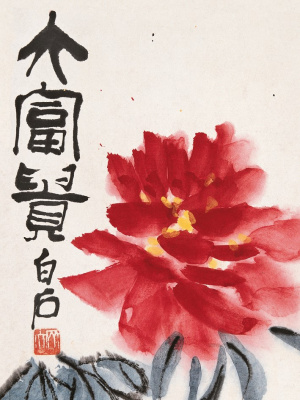 大富貴
白石